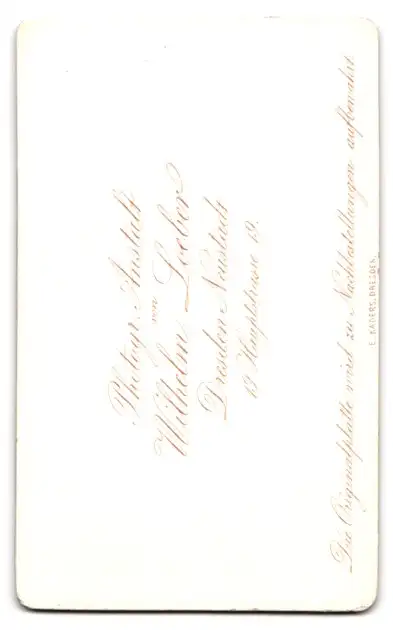 Photogr. Anstalt
von
Wilhelm Loeber
Dresden Neustadt
19 Hauptstrasse 19.
Die Originalplatte wird zu Nachbestellungen aufbewahrt.
E. KADERS, DRESDEN.